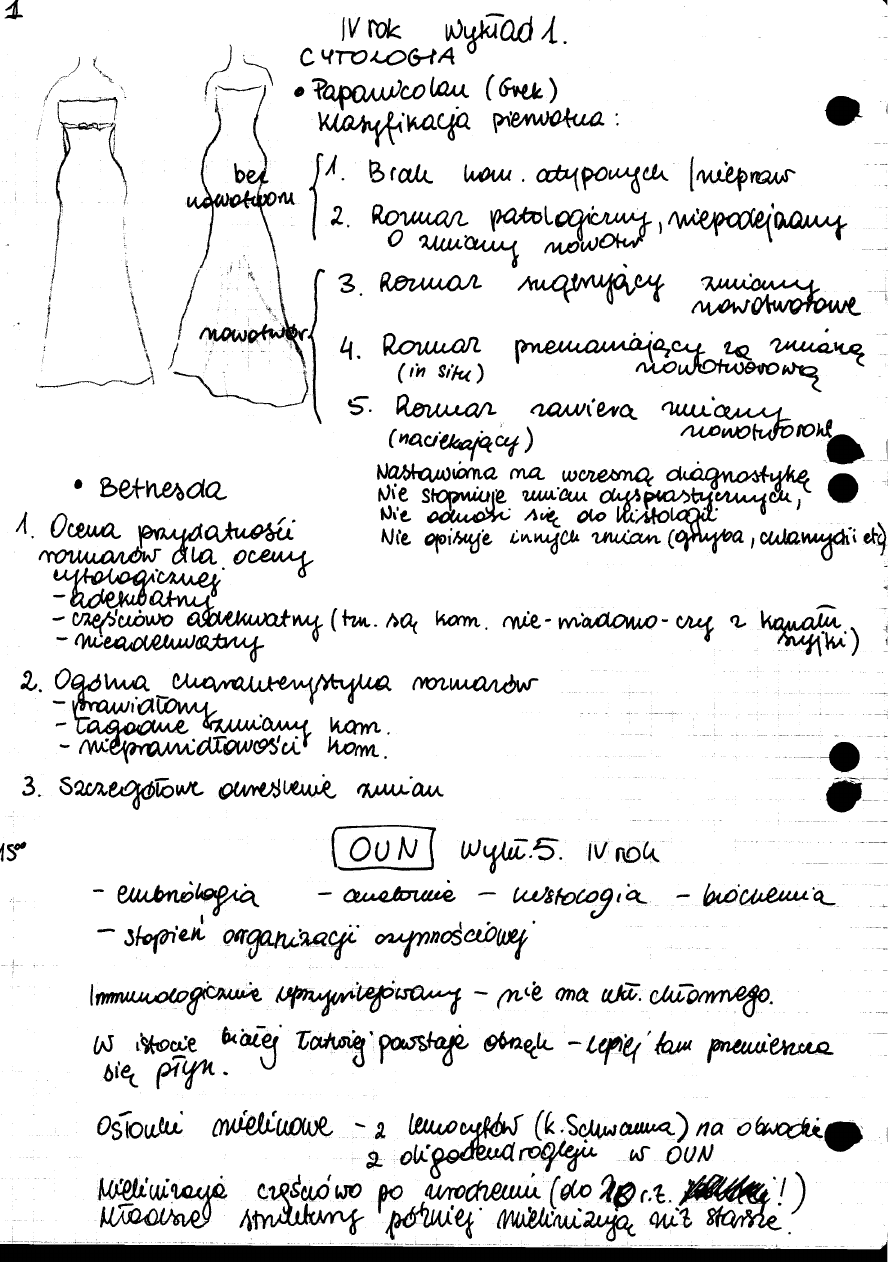 1
IV rok Wykład 1.
CYTOLOGIA
• Papanicolau (Grek)
Klasyfikacja pierwotna :
bez nowotworu
1. Brak kom. atypowych / niepraw
2. Rozmaz patologiczny, niepodejrzany
o zmiany nowotw
nowotwór
3. Rozmaz sugerujący zmiany
nowotworowe
4. Rozmaz przemawiający za zmianą
(in situ) nowotworową
5. Rozmaz zawiera zmiany
(naciekający) nowotworowe
Nastawiona na wczesną diagnostykę
Nie stopniuje zmian dysplastycznych,
Nie odnosi się do histologii
Nie opisuje innych zmian (grzyba, chlamydii etc)
• Bethesda
1. Ocena przydatności
rozmazów dla oceny
cytologicznej
- adekwatny
- częściowo adekwatny (tzn. są kom. nie-wiadomo-czy z kanału
szyjki)
- nieadekwatny
2. Ogólna charakterystyka rozmazów
- prawidłowy
- łagodne zmiany kom.
- nieprawidłowości kom.
3. Szczegółowe określenie zmian
15°°
OUN Wykł.5. IV rok
- embriologia - anatomia - histologia - biochemia
- stopień organizacji czynnościowej
Immunologicznie uprzywilejowany - nie ma ukł. chłonnego.
W istocie białej łatwiej powstaje obrzęk - lepiej tam przemieszcza
się płyn.
Osłonki mielinowe - z lemocytów (k. Schwanna) na obwodzie
z oligodendrogleju w OUN
Mielinizacja częściowo po urodzeniu (do r.ż. !)
Młodsze struktury później mielinizują niż starsze.